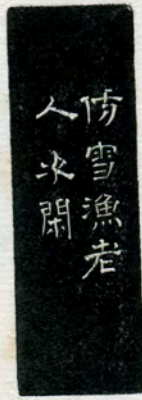 仿雪漁老
人氷閑